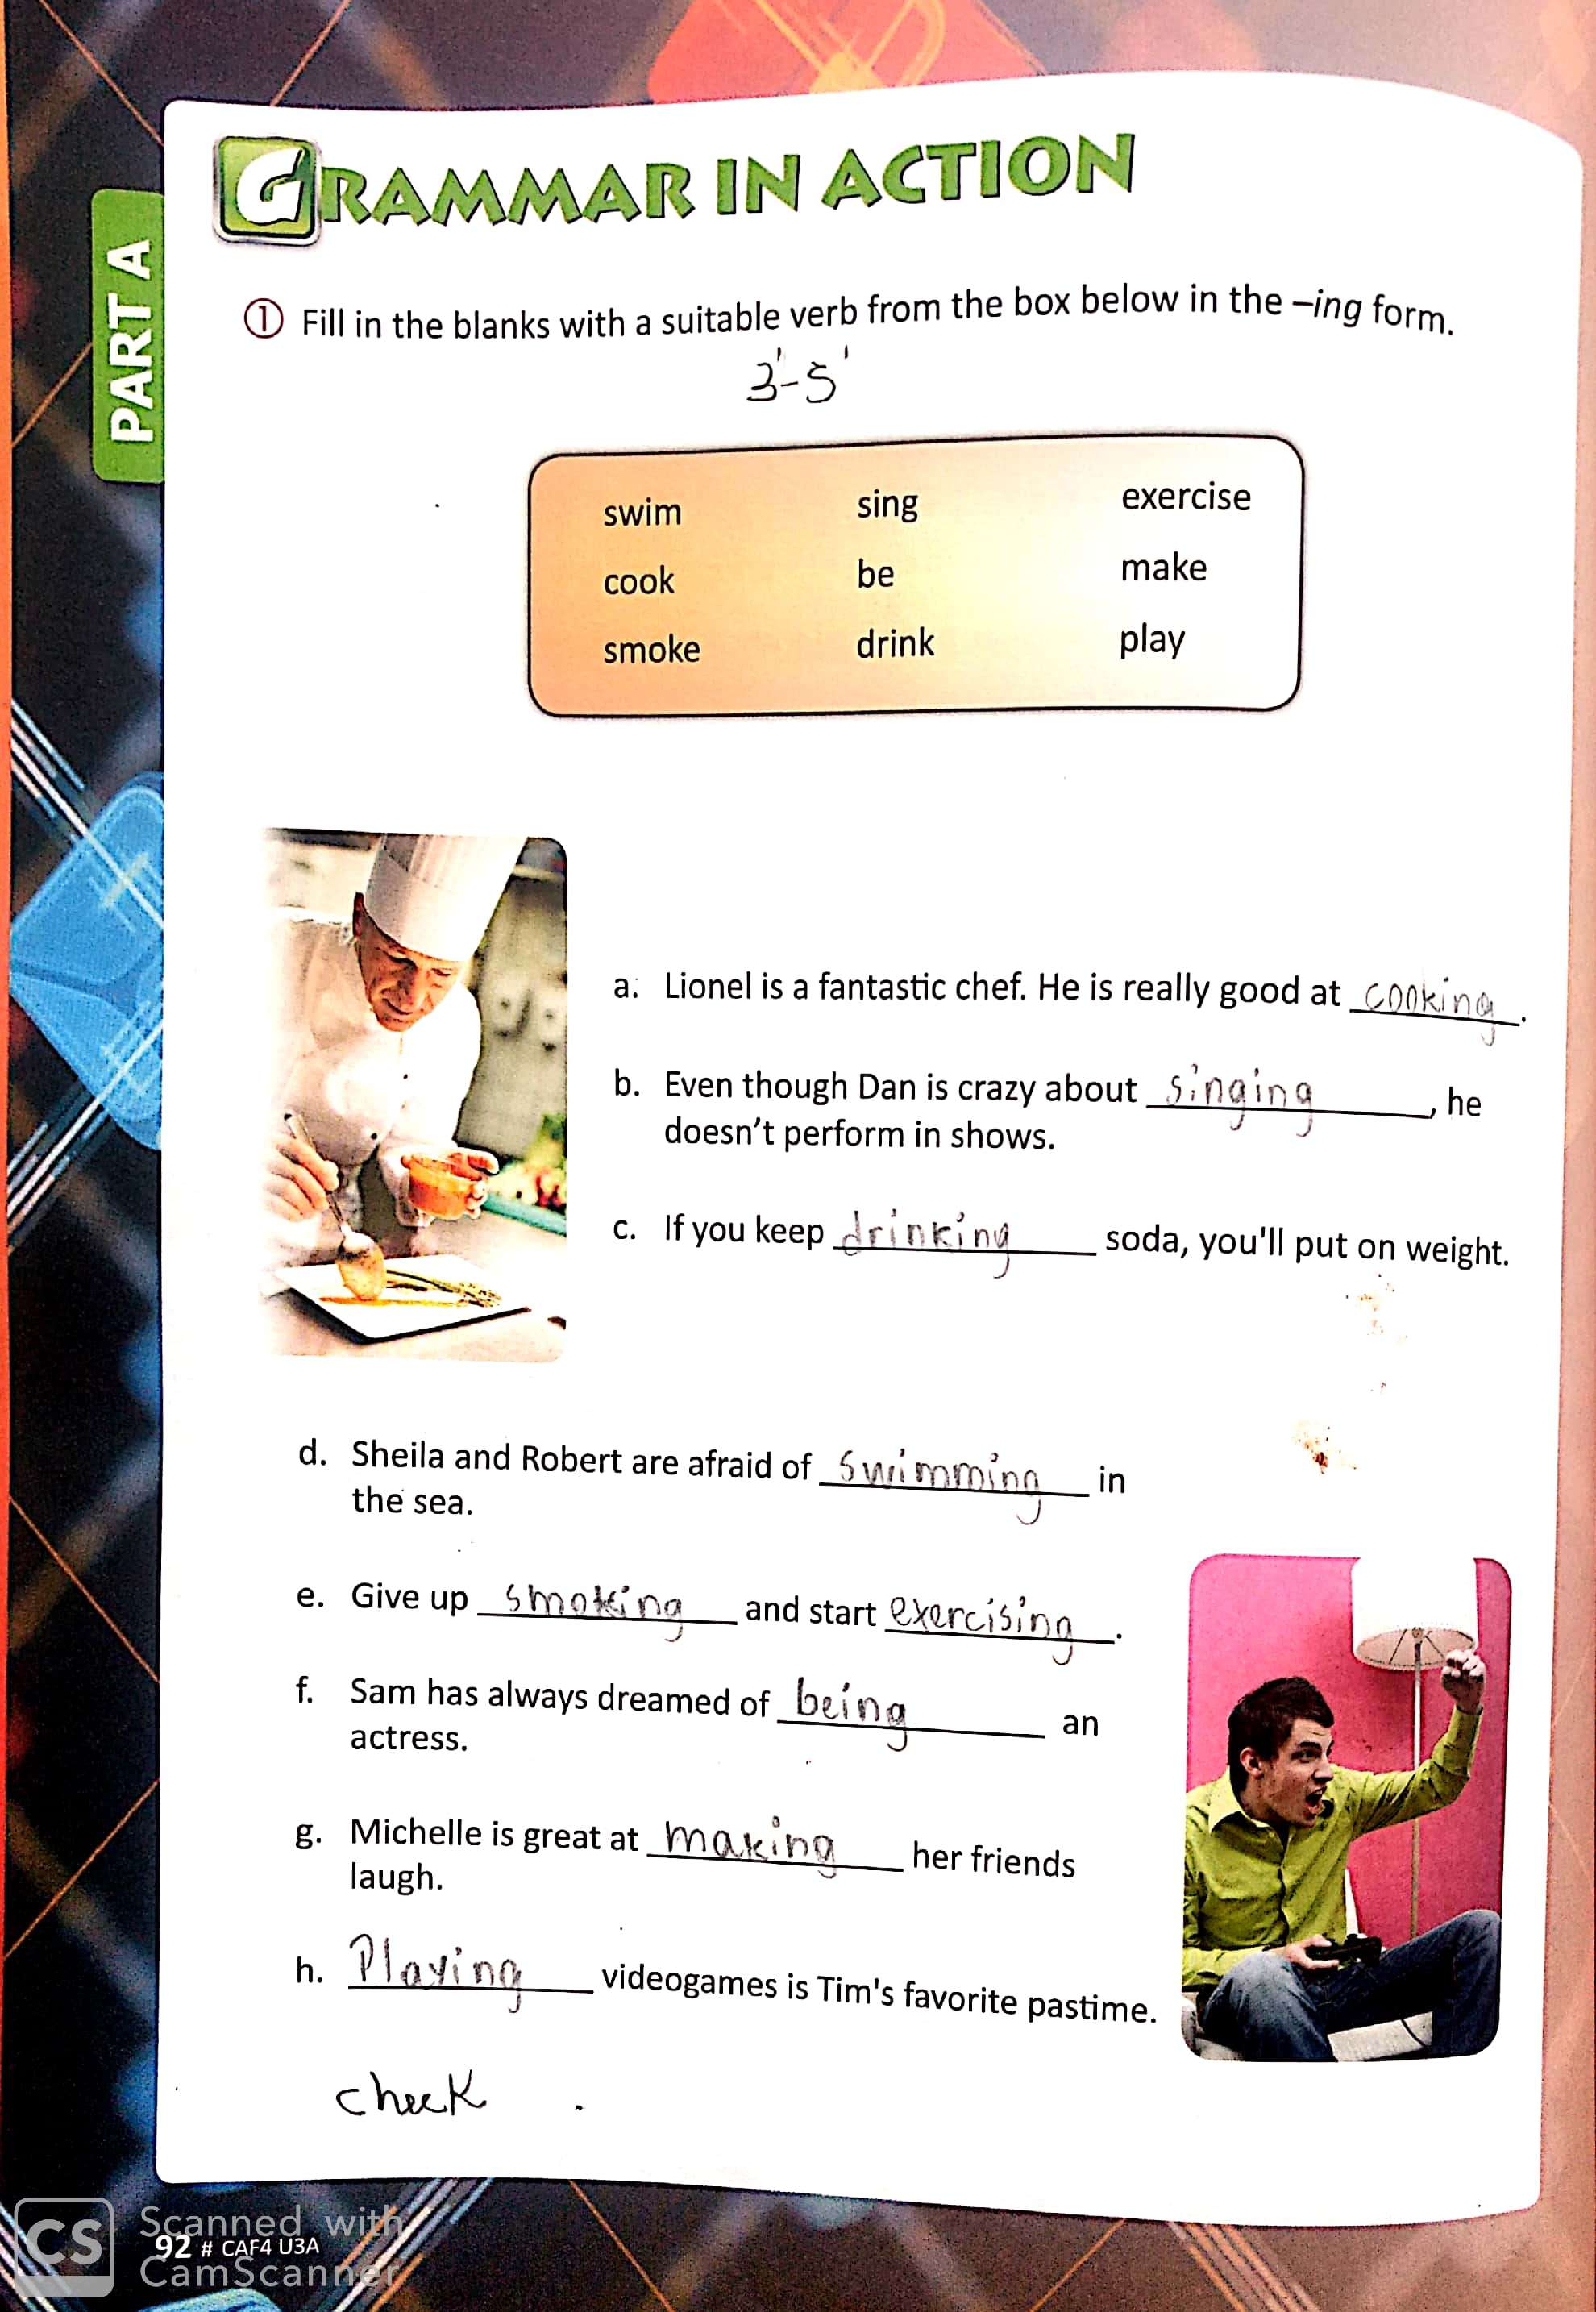 GRAMMAR IN ACTION
PART A
① Fill in the blanks with a suitable verb from the box below in the –ing form.
3'-5'
swim sing exercise
cook be make
smoke drink play
a. Lionel is a fantastic chef. He is really good at cooking.
b. Even though Dan is crazy about singing, he
doesn't perform in shows.
c. If you keep drinking soda, you'll put on weight.
d. Sheila and Robert are afraid of swimming in
the sea.
e. Give up smoking and start exercising.
f. Sam has always dreamed of being an
actress.
g. Michelle is great at making her friends
laugh.
h. Playing videogames is Tim's favorite pastime.
check
CS Scanned with
92 # CAF4 U3A
CamScanner